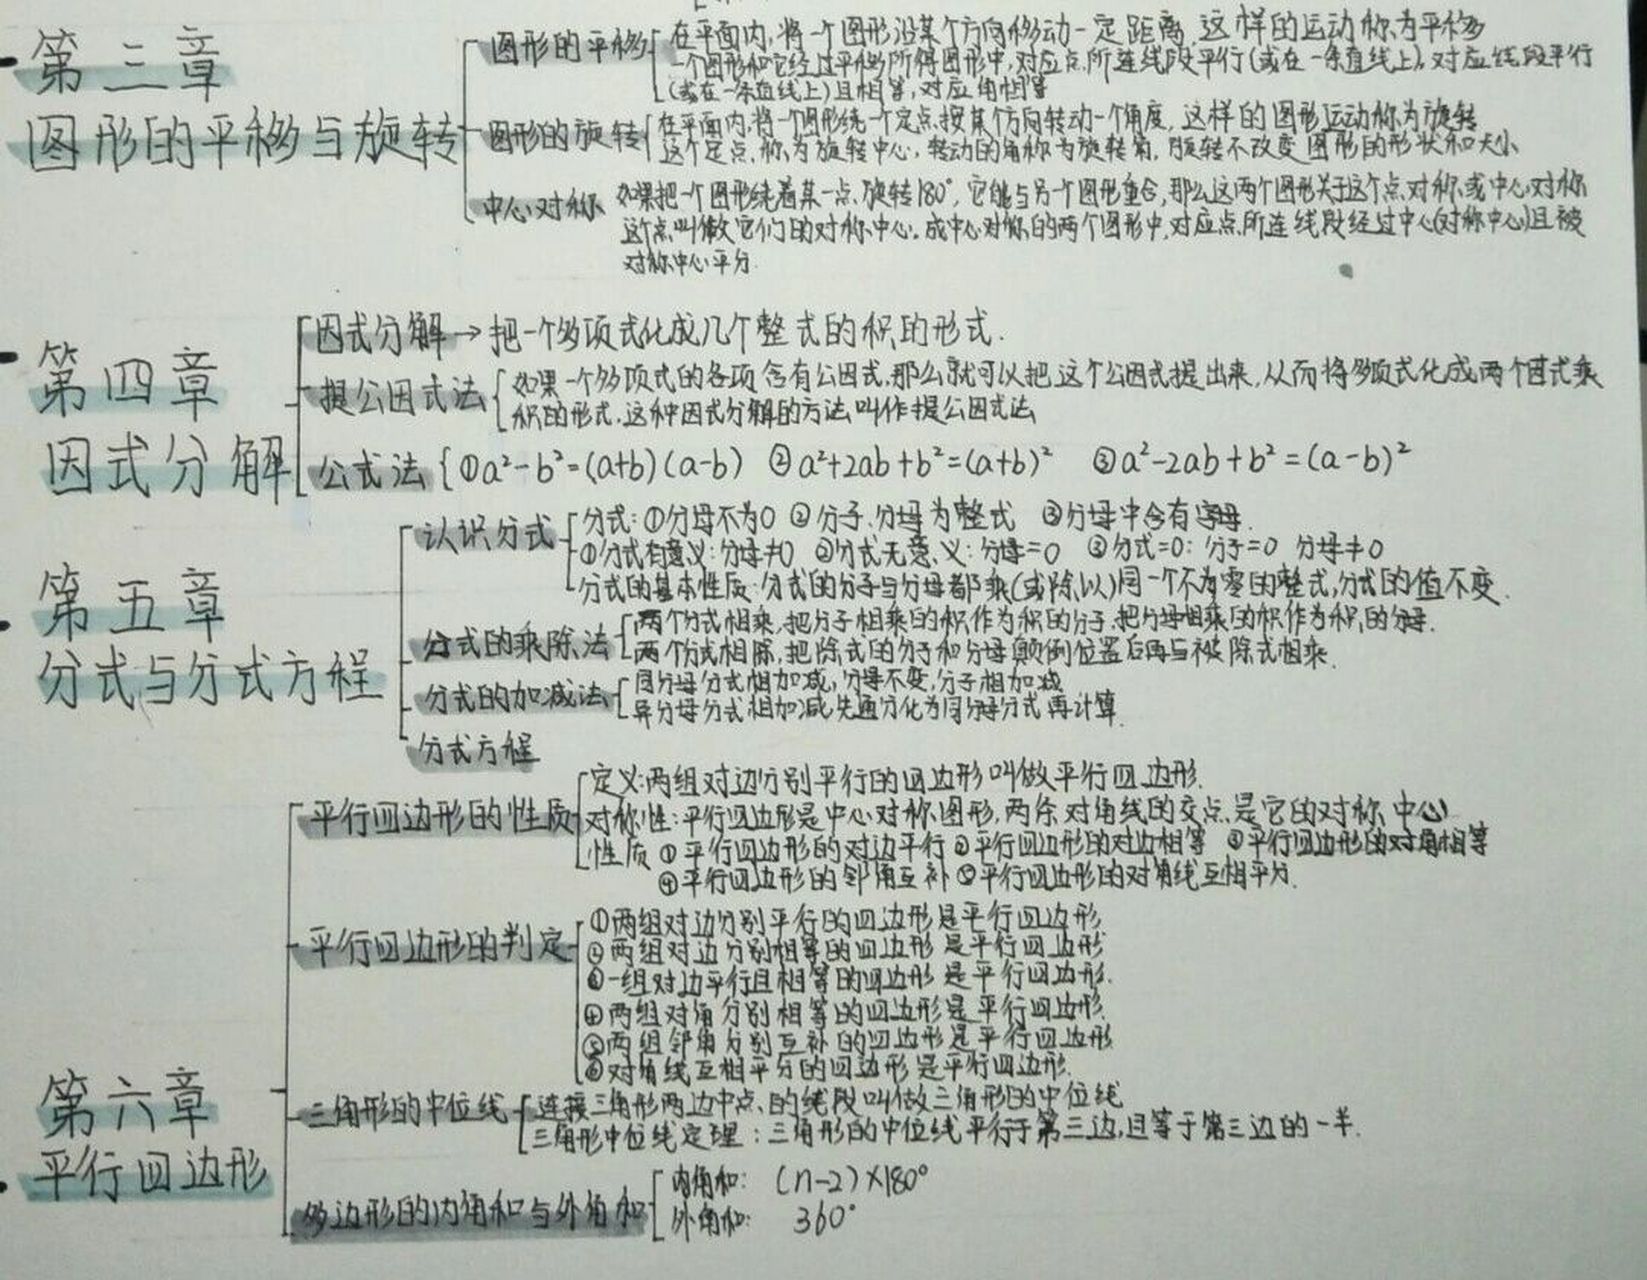 第三章
图形的平移与旋转
图形的平移
在平面内,将一个图形沿某个方向移动一定距离,这样的运动称为平移
一个图形和它经过平移所得图形中,对应点所连线段平行(或在一条直线上),对应线段平行
(或在一条直线上)且相等,对应角相等
图形的旋转
在平面内,将一个图形绕一个定点按某个方向转动一个角度,这样的图形运动称为旋转
这个定点称为旋转中心,转动的角称为旋转角,旋转不改变图形的形状和大小
中心对称
如果把一个图形绕着某一点旋转180°,它能与另一个图形重合,那么这两个图形关于这个点对称或中心对称
这个点叫做它们的对称中心.成中心对称的两个图形中,对应点所连线段经过中心(对称中心)且被
对称中心平分.
第四章
因式分解
因式分解→把一个多项式化成几个整式的积的形式.
提公因式法
如果一个多项式的各项含有公因式,那么就可以把这个公因式提出来,从而将多项式化成两个因式乘
积的形式.这种因式分解的方法叫作提公因式法
公式法{①a²-b²=(a+b)(a-b) ②a²+2ab+b²=(a+b)² ③a²-2ab+b²=(a-b)²
第五章
分式与分式方程
认识分式
分式:①分母不为0 ②分子、分母为整式 ③分母中含有字母.
①分式有意义:分母≠0 ②分式无意义:分母=0 ③分式=0:分子=0 分母≠0
分式的基本性质:分式的分子与分母都乘(或除以)同一个不为零的整式,分式的值不变.
分式的乘除法
两个分式相乘,把分子相乘的积作为积的分子,把分母相乘的积作为积的分母.
两个分式相除,把除式的分子和分母颠倒位置后再与被除式相乘.
分式的加减法
同分母分式相加减,分母不变,分子相加减
异分母分式相加减先通分化为同分母分式再计算.
分式方程
第六章
平行四边形
平行四边形的性质
定义:两组对边分别平行的四边形叫做平行四边形.
对称性:平行四边形是中心对称图形,两条对角线的交点是它的对称中心
性质 ①平行四边形的对边平行 ②平行四边形的对边相等 ③平行四边形的对角相等
④平行四边形的邻角互补 ⑤平行四边形的对角线互相平分.
平行四边形的判定
①两组对边分别平行的四边形是平行四边形
②两组对边分别相等的四边形是平行四边形
③一组对边平行且相等的四边形是平行四边形.
④两组对角分别相等的四边形是平行四边形.
⑤两组邻角分别互补的四边形是平行四边形
⑥对角线互相平分的四边形是平行四边形.
三角形的中位线
连接三角形两边中点的线段叫做三角形的中位线
三角形中位线定理:三角形的中位线平行于第三边,且等于第三边的一半.
多边形的内角和与外角和
内角和: (n-2)×180°
外角和: 360°